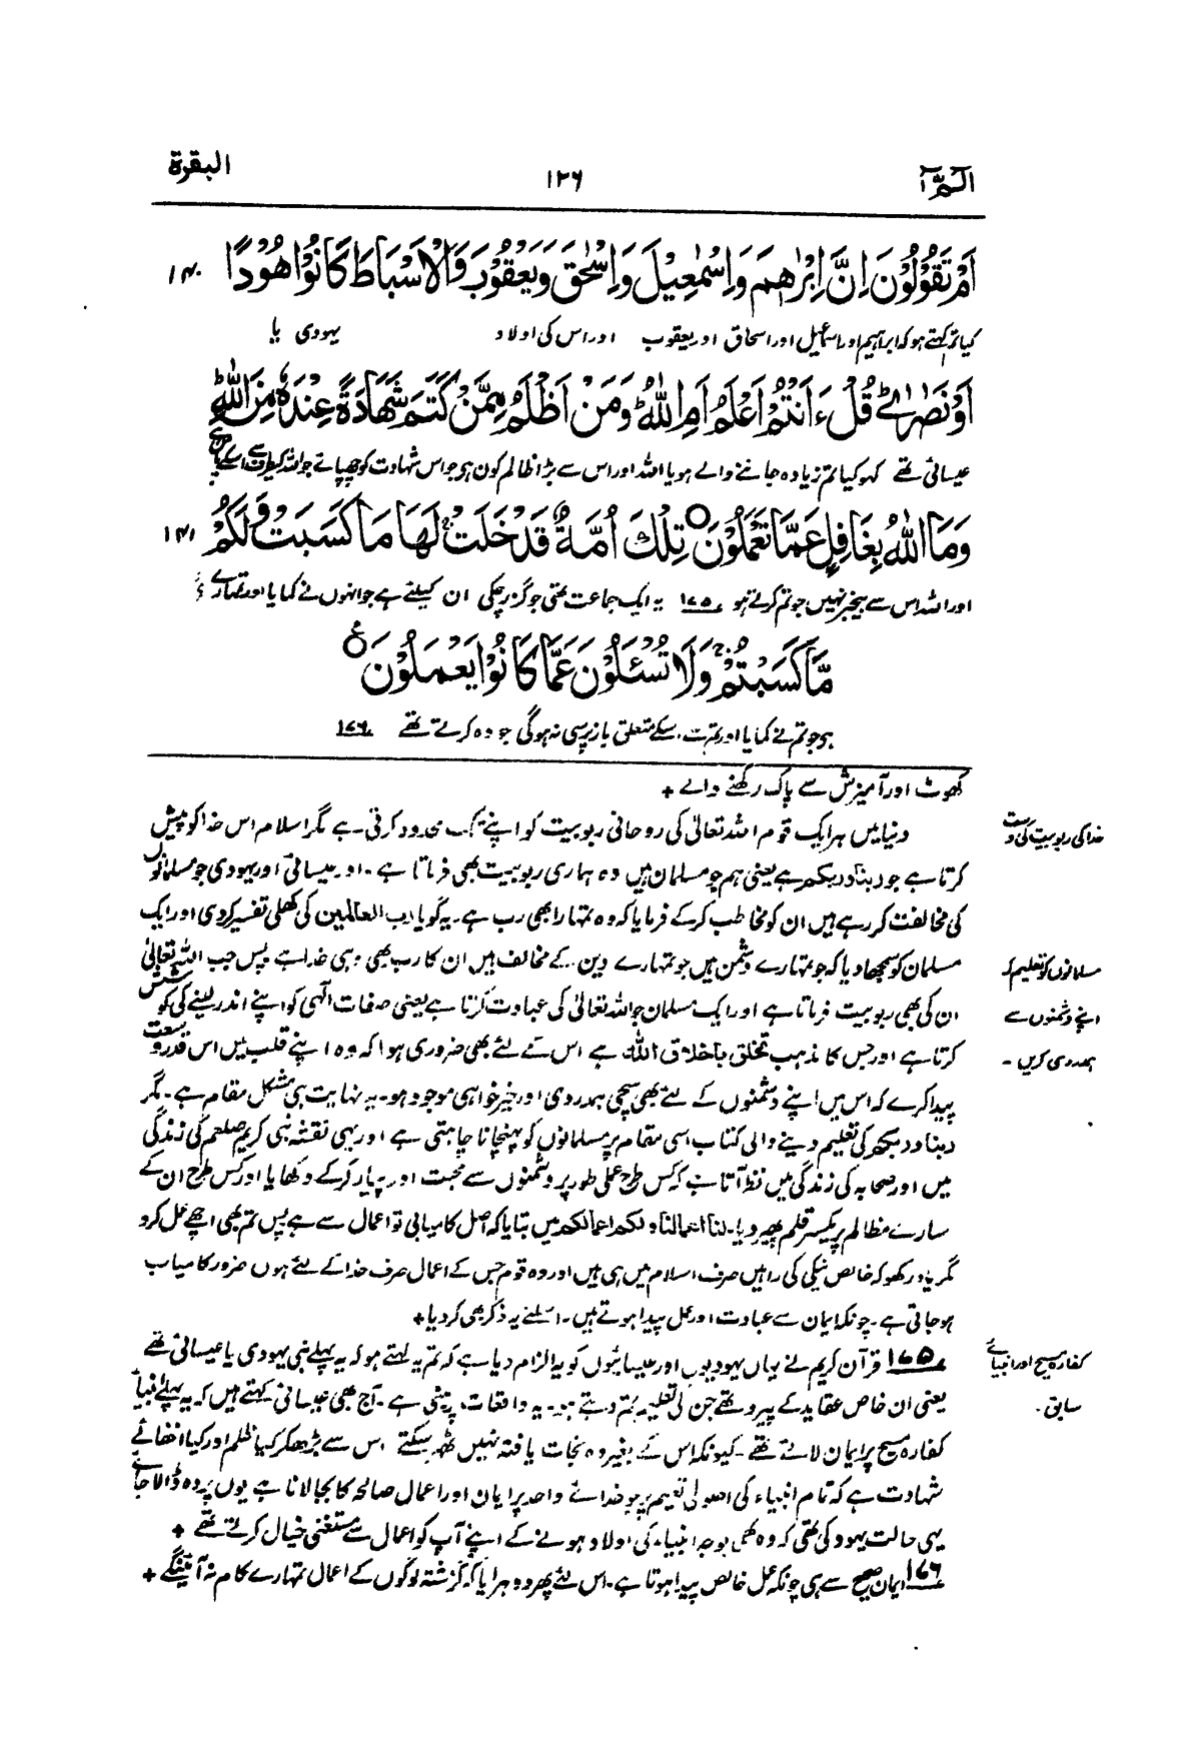 الٓمّٓ ١
١٢٦
البقرة
اَمْ تَقُوْلُوْنَ اِنَّ اِبْرٰهٖمَ وَاِسْمٰعِيْلَ وَاِسْحٰقَ وَيَعْقُوْبَ وَالْاَسْبَاطَ كَانُوْا هُوْدًا
١٤٠
کیا تم کہتے ہو کہ ابراہیم اور اسمٰعیل اور اسحاق اور یعقوب اور اس کی اولاد یہودی یا
اَوْ نَصٰرٰى ؕ قُلْ ءَاَنْتُمْ اَعْلَمُ اَمِ اللّٰهُ ؕ وَمَنْ اَظْلَمُ مِمَّنْ كَتَمَ شَهَادَةً عِنْدَهٗ مِنَ اللّٰهِ ؕ
عیسائی تھے کہو کیا تم زیادہ جاننے والے ہو یا اللہ اور اس سے بڑا ظالم کون ہو جو اس شہادت کو چھپائے جو اللہ کیطرف سے اسکے پاس
وَمَا اللّٰهُ بِغَافِلٍ عَمَّا تَعْمَلُوْنَ ○ تِلْكَ اُمَّةٌ قَدْ خَلَتْ ۚ لَهَا مَا كَسَبَتْ وَلَكُمْ
١٤١
اور اللہ اس سے بیخبر نہیں جو تم کرتے ہو ١٧٥ یہ ایک جماعت تھی جو گزر چکی ان کیلئے ہے جو انہوں نے کمایا اور تمہارے
مَّا كَسَبْتُمْ ۚ وَلَا تُسْـَٔلُوْنَ عَمَّا كَانُوْا يَعْمَلُوْنَ ○
ہے جو تم نے کمایا اور تم سے اسکے متعلق باز پرسی نہ ہوگی جو وہ کرتے تھے ١٧٦
کھوٹ اور آمیزش سے پاک رکھنے والے +
خدا کی ربوبیت کی وسعت
دنیا میں ہر ایک قوم اللہ تعالیٰ کی روحانی ربوبیت کو اپنے تک محدود کرتی ہے مگر اسلام اس خدا کو پیش
کرتا ہے جو ربنا و ربکم ہے یعنی ہم جو مسلمان ہیں وہ ہماری ربوبیت بھی فرماتا ہے۔ اور عیسائی اور یہودی جو مسلمانوں
کی مخالفت کر رہے ہیں ان کو مخاطب کر کے فرمایا کہ وہ تمہارا بھی رب ہے۔ یہ گویا رب العالمین کی کھلی تفسیر کر دی اور ایک
مسلمانوں کو تعلیم کہ
اپنے دشمنوں سے
ہمدردی کریں۔
مسلمان کو سمجھا دیا کہ جو تمہارے دشمن ہیں جو تمہارے دین کے مخالف ہیں ان کا رب بھی وہی خدا ہے پس جب اللہ تعالیٰ
ان کی بھی ربوبیت فرماتا ہے اور ایک مسلمان جو اللہ تعالیٰ کی عبادت کرتا ہے یعنی صفات الٰہی کو اپنے اندر لینے کی کوشش
کرتا ہے اور جس کا مذہب تخلق باخلاق اللہ ہے اس کے لئے بھی ضروری ہوا کہ وہ اپنے قلب میں اس قدر وسعت
پیدا کرے کہ اس میں اپنے دشمنوں کے لئے بھی سچی ہمدردی اور خیر خواہی موجود ہو۔ یہ نہایت ہی مشکل مقام ہے۔ مگر
ربنا و ربکم کی تعلیم دینے والی کتاب اسی مقام پر مسلمانوں کو پہنچانا چاہتی ہے اور یہی نقشہ نبی کریم صلعم کی زندگی
میں اور صحابہ کی زندگی میں نظر آتا ہے کہ کس طرح عملی طور پر دشمنوں سے محبت اور پیار کر کے دکھایا اور کس طرح ان کے
سارے مظالم پر یکسر قلم پھیر دیا۔ لنا اعمالنا ولکم اعمالکم میں بتایا کہ اصل کامیابی تو اعمال سے ہے پس تم بھی اچھے عمل کرو
مگر یاد رکھو کہ خالص نیکی کی راہیں صرف اسلام میں ہی ہیں اور وہ قوم جس کے اعمال صرف خدا کے لئے ہوں ضرور کامیاب
ہو جاتی ہے۔ چونکہ ایمان سے عبادت اور عمل پیدا ہوتے ہیں۔ اسلئے یہ ذکر بھی کر دیا +
کفارہ مسیح اور انبیائے
سابق۔
١٧٥ قرآن کریم نے یہاں یہودیوں اور عیسائیوں کو یہ الزام دیا ہے کہ تم یہ کہتے ہو کہ یہ پہلے نبی یہودی یا عیسائی تھے
یعنی ان خاص عقاید کے پیرو تھے جن کی تعلیم تم دیتے ہو۔ یہ واقعات پر مبنی ہے۔ آج بھی عیسائی کہتے ہیں کہ یہ پہلے انبیا
کفارہ مسیح پر ایمان لاتے تھے۔ کیونکہ اس کے بغیر وہ نجات یافتہ نہیں ٹھہر سکتے اس سے بڑھکر کیا ظلم اور کیا اخفائے
شہادت ہے کہ تمام انبیاء کی اصولی تعلیم پر جو خدائے واحد پر ایمان اور اعمال صالحہ کا بجا لانا ہے یوں پردہ ڈالا جائے
یہی حالت یہود کی تھی کہ وہ بھی بوجہ انبیاء کی اولاد ہونے کے اپنے آپ کو اعمال سے مستغنی خیال کرتے تھے +
١٧٦ ایمان صحیح سے ہی چونکہ عمل خالص پیدا ہوتا ہے۔ اس لئے پھر دوہرایا کہ گزشتہ لوگوں کے اعمال تمہارے کام نہ آئینگے +